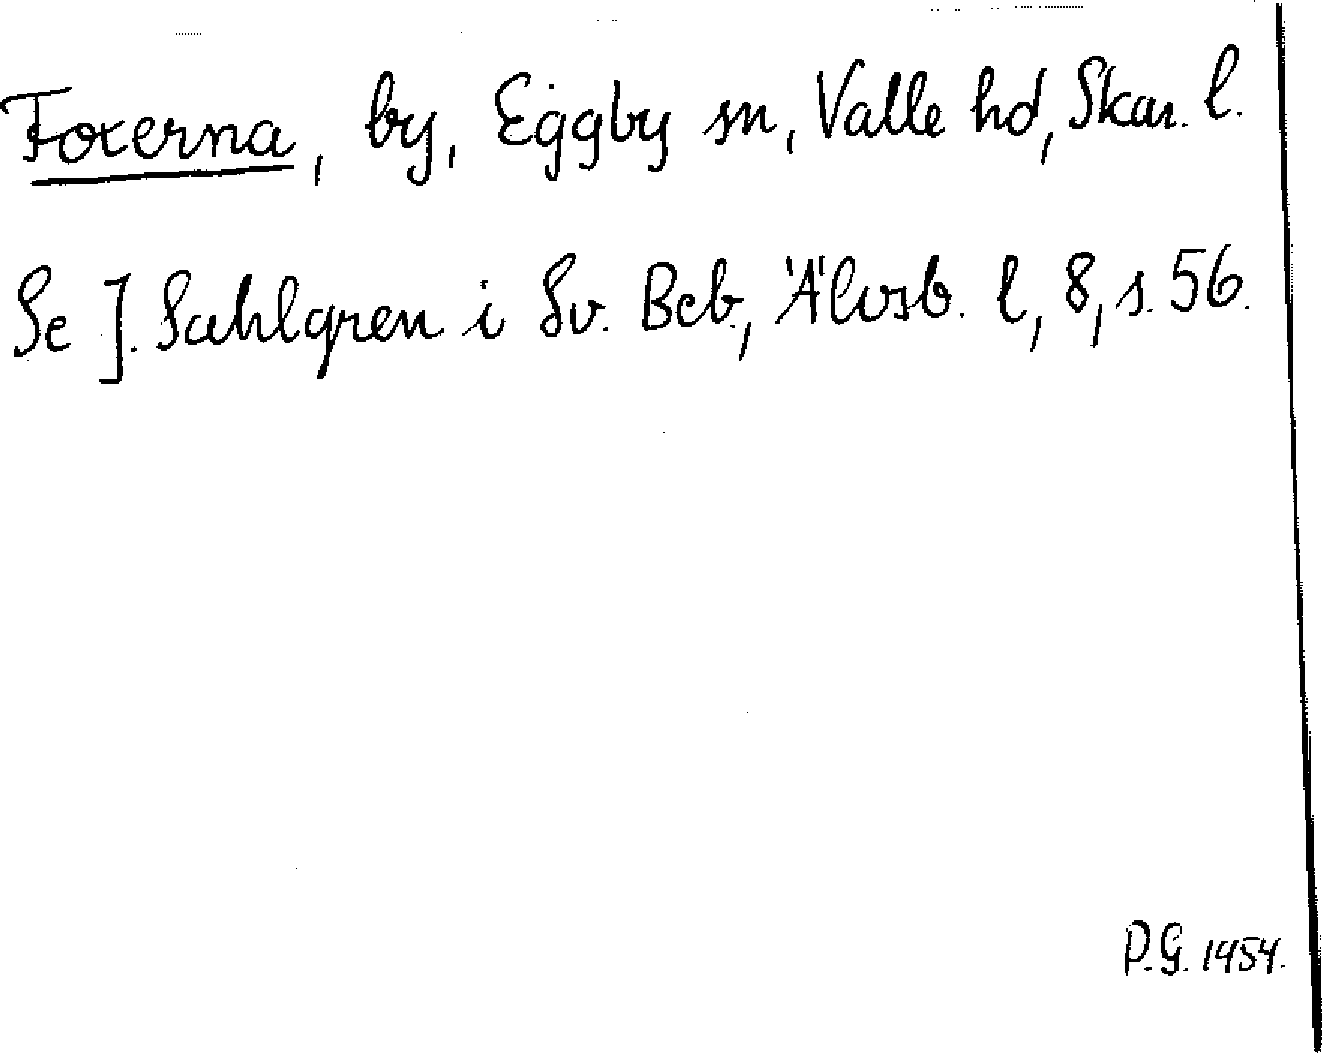 Foxerna, by, Eggby sn, Valle hd, Skar. l.
Se J. Sahlgren i Sv. Beb., Älvsb. l, 8, s. 56.
P.G. 1954.